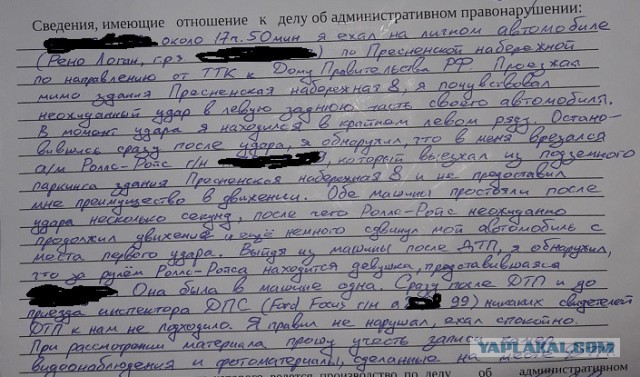 Сведения, имеющие отношение к делу об административном правонарушении:
около 17ч. 50мин я ехал на личном автомобиле
(Рено Логан, грз) по Пресненской набережной
по направлению от ТТК к Дому Правительства РФ. Проезжая
мимо здания Пресненская набережная 8, я почувствовал
неожиданный удар в левую заднюю часть своего автомобиля.
В момент удара я находился в крайнем левом ряду. Остано-
вившись сразу после удара, я обнаружил, что в меня врезался
а/м Роллс-Ройс г/н, который выезжал из подземного
паркинга здания Пресненская набережная 8 и не предоставил
мне преимущество в движении. Обе машины простояли после
удара несколько секунд, после чего Роллс-Ройс неожиданно
продолжил движение и ещё немного сдвинул мой автомобиль с
места первого удара. Выйдя из машины после ДТП, я обнаружил,
что за рулём Роллс-Ройса находится девушка, представившаяся
Она была в машине одна. Сразу после ДТП и до
приезда инспектора ДПС (Ford Focus г/н а 99) никаких свидетелей
ДТП к нам не подходило. Я правил не нарушал, ехал спокойно.
При рассмотрении материала прошу учесть записи
видеонаблюдения и фотоматериалы, сделанные на месте
производство по делу об административном
YAPLAKAL.COM